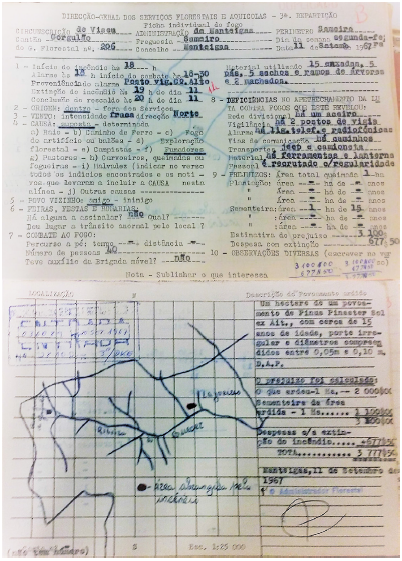 DIRECÇÃO-GERAL DOS SERVIÇOS FLORESTAIS E AQUÍCOLAS - 3ª. REPARTIÇÃO
Ficha individual de fogo
de Viseu ADMINISTRAÇÃO de Manteigas PERÍMETRO Sameiro
Gorgulão Freguesia Sameiro segunda-feira
G. Florestal nº. 206 Concelho Manteigas 11 1967
1 - Início do incêndio às 18 h
Alarme às 18 h início do combate 18-30
Prevenido do alarme Posto Vig.C9, Alto
Extinção do incêndio às 19 h 11
Conclusão do rescaldo às 20 h do dia 11
2 - ORDENS dentro - fora dos Serviços
3 - VENTO: intensidade fraca direcção Norte
4 - CAUSA suposta - determinada
a) Raio - b) Caminho de Ferro - c) Fogo
de artifício ou balões - d) Exploração
florestal - e) Campistas - f) Fumadores
g) Pastores - h) Carvoeiros, queimadas ou
fogueiras - i)
indícios encontrados e os
vos que levaram a incluir a CAUSA nesta
alínea - j) Outras causas
5 - POVO VIZINHO: amigo - inimigo
6 - FEIRAS, FESTAS E ROMARIAS:
Há alguma a assinalar? não Qual? -
Deu lugar a trânsito anormal pelo local ?
7 - COMBATE AO FOGO:
Percurso a pé: tempo - distância -
Número de pessoas 40
Teve auxílio da Brigada móvel? não
Material utilizado 15 enxadas, 5
pás, 5 sachos e ramos de árvores
e 2 machados.
8 - DEFICIÊNCIAS OU APETRECHAMENTO DA LU
TA CONTRA FOGOS QUE ESTE REVELOU
Rede divisional há um aceiro
Vigilância há 2 postos de vigia
Alarme há lin. telef. e radiofónicas
Vias de comunicação há caminhos
Transporte jeep e camioneta
Material há ferramentas e lanternas
Pessoal é recrutado c/regularidade
9 - PREJUÍZOS: Área total queimada 1
(Plantação: área - ha de - anos
" área - ha de - anos
" área - ha de - anos
Sementeira: área 1 ha de 15 anos
" área - ha de - anos
Estimativa do prejuízo 3 100$00
Despesa com extinção 677$50
10 - OBSERVAÇÕES DIVERSAS (escrever no
3 100$00
677$50
3 777$50
Nota - Sublinhar o que interessa
LOCALIZAÇÃO
Descrição do Povoamento ardido
ENTRADA
Um hectare de um povoa-
mento de Pinus Pinaster Sol
ex Ait., com cerca de 15
anos de idade, porte irre-
gular e diâmetros compreen
didos entre 0,05m e 0,10 m.
D.A.P.
O prejuízo foi calculado:
O que ardeu-1 Ha. - 2 000$00
Sementeira da área
ardida - 1 Ha. 1 100$00
3 100$00
Despesas c/a extin-
ção do incêndio. +677$50
TOTAL 3 777$50
Manteigas, 11 de Setembro de
1967
O Administrador Florestal
Área abrangida pelo
incêndio
(não tem número)
S
Esc. 1:25 000